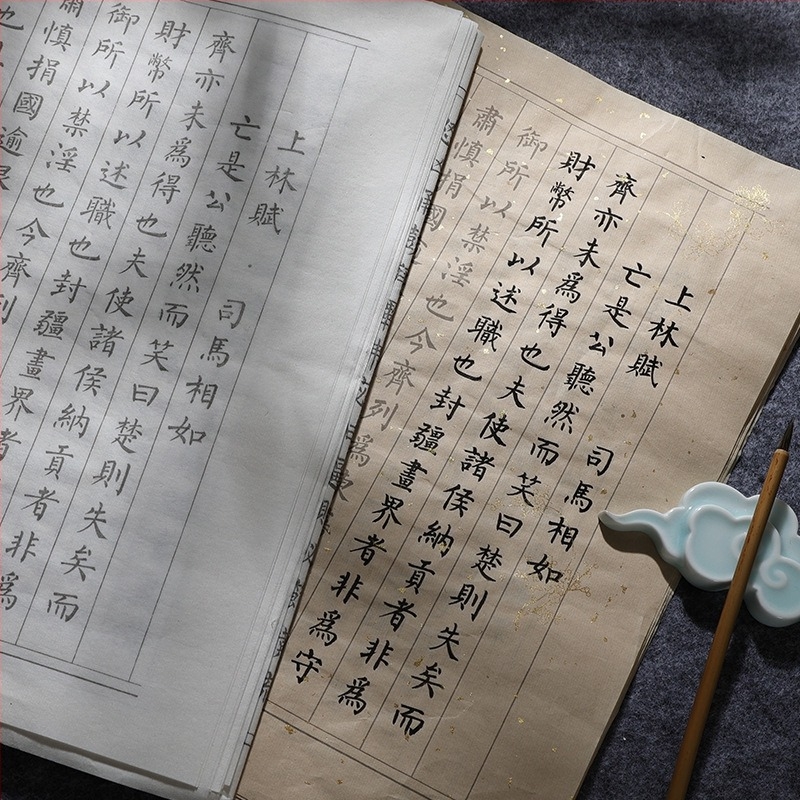 上林賦 司馬相如
亡是公聽然而笑曰楚則失矣而
齊亦未爲得也夫使諸侯納貢者非爲
財幣所以述職也封疆畫界者非爲守
御所以禁淫也今齊列爲
肅慎捐國
上林賦 司馬相如
亡是公聽然而笑曰楚則失矣而
齊亦未爲得也夫使諸侯納貢者非爲
財幣所以述職也封疆畫界者
御所以禁淫也今齊列
肅慎捐國逾限
也